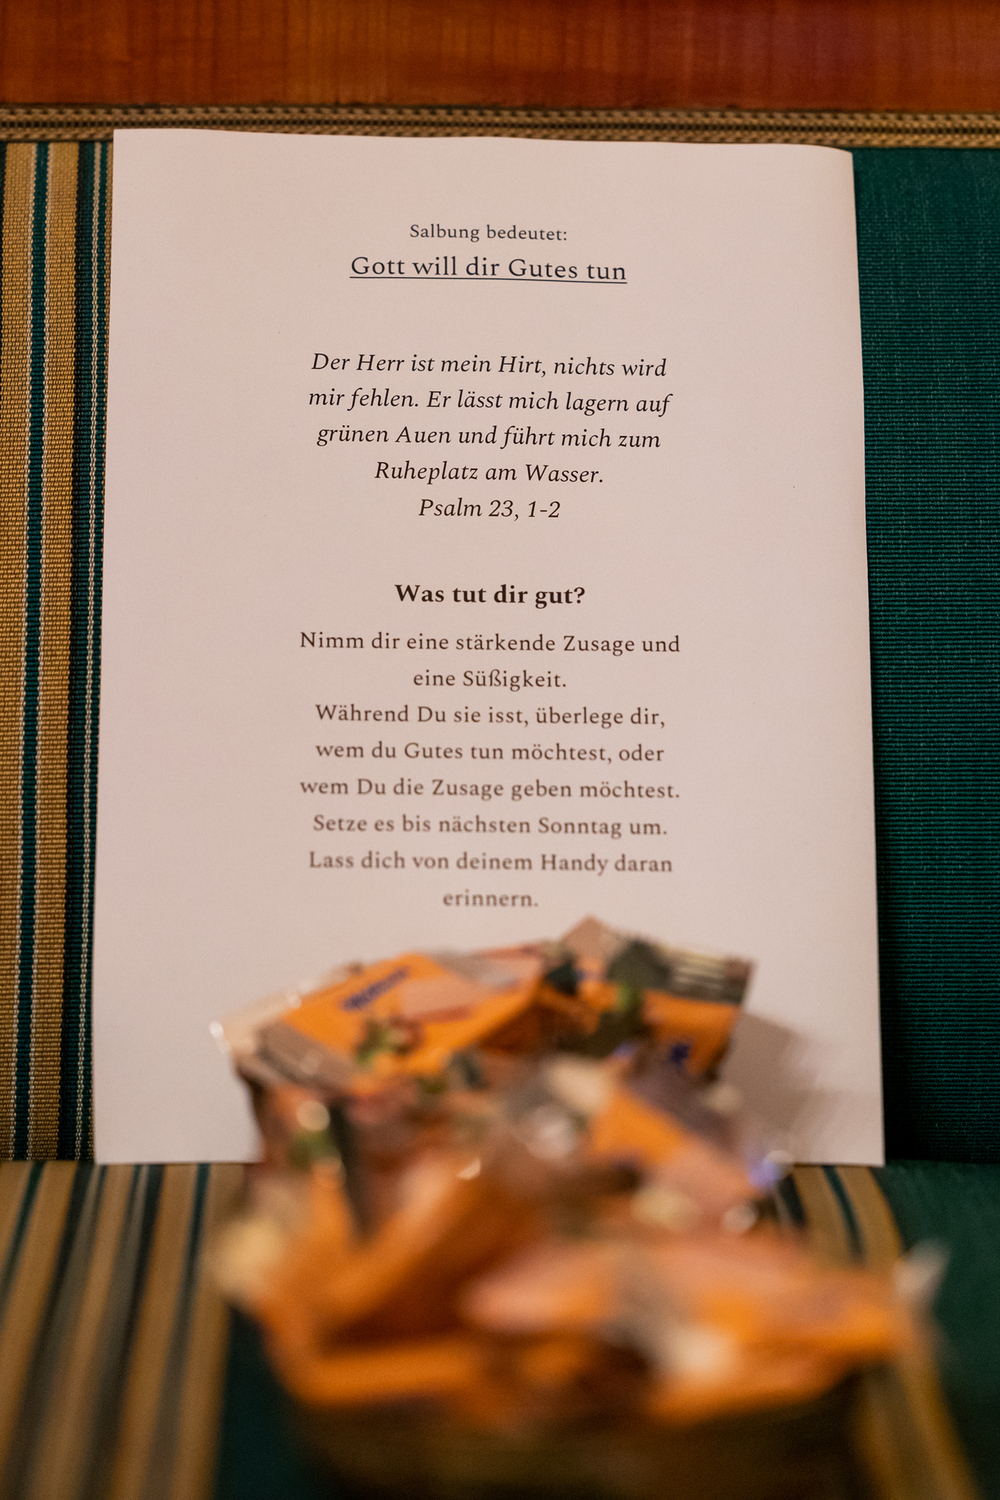 Salbung bedeutet:
Gott will dir Gutes tun
Der Herr ist mein Hirt, nichts wird
mir fehlen. Er lässt mich lagern auf
grünen Auen und führt mich zum
Ruheplatz am Wasser.
Psalm 23, 1-2
Was tut dir gut?
Nimm dir eine stärkende Zusage und
eine Süßigkeit.
Während Du sie isst, überlege dir,
wem du Gutes tun möchtest, oder
wem Du die Zusage geben möchtest.
Setze es bis nächsten Sonntag um.
Lass dich von deinem Handy daran
erinnern.